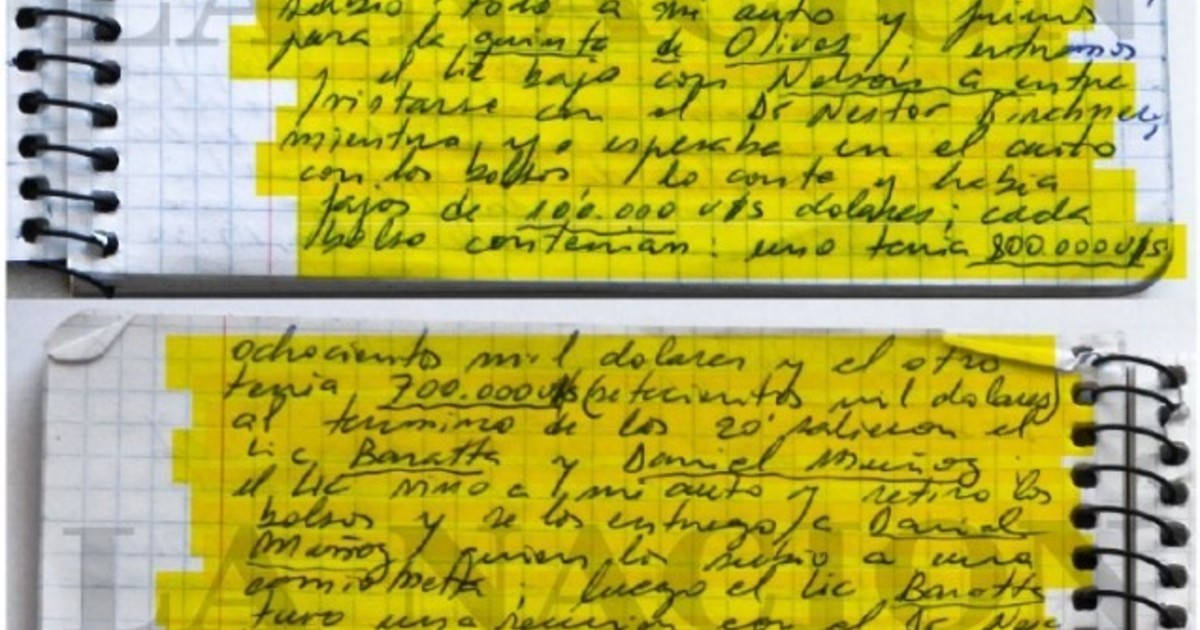 subio todo a mi auto y fuimos
para la quinta de Olivos, entramos
y el lic bajo con Nelson a entre
/vistarse con el Dr Nestor Kirchner,
mientra yo esperaba en el auto
con los bolsos, lo conte y habia
fajos de 100.000 u$s dolares; cada
bolso contenian: uno tenia 800.000 u$s
ochocientos mil dolares y el otro
tenia 700.000 u$s (setecientos mil dolares)
al termino de los 20' salieron el
lic Baratta y Daniel Muñoz.
el Lic vino a mi auto y retiro los
bolsos y se los entrego a Daniel
Muñoz, quien los subio a una
camio/netta; luego el lic Baratta
tuvo una reunion con el Dr
LA NACION